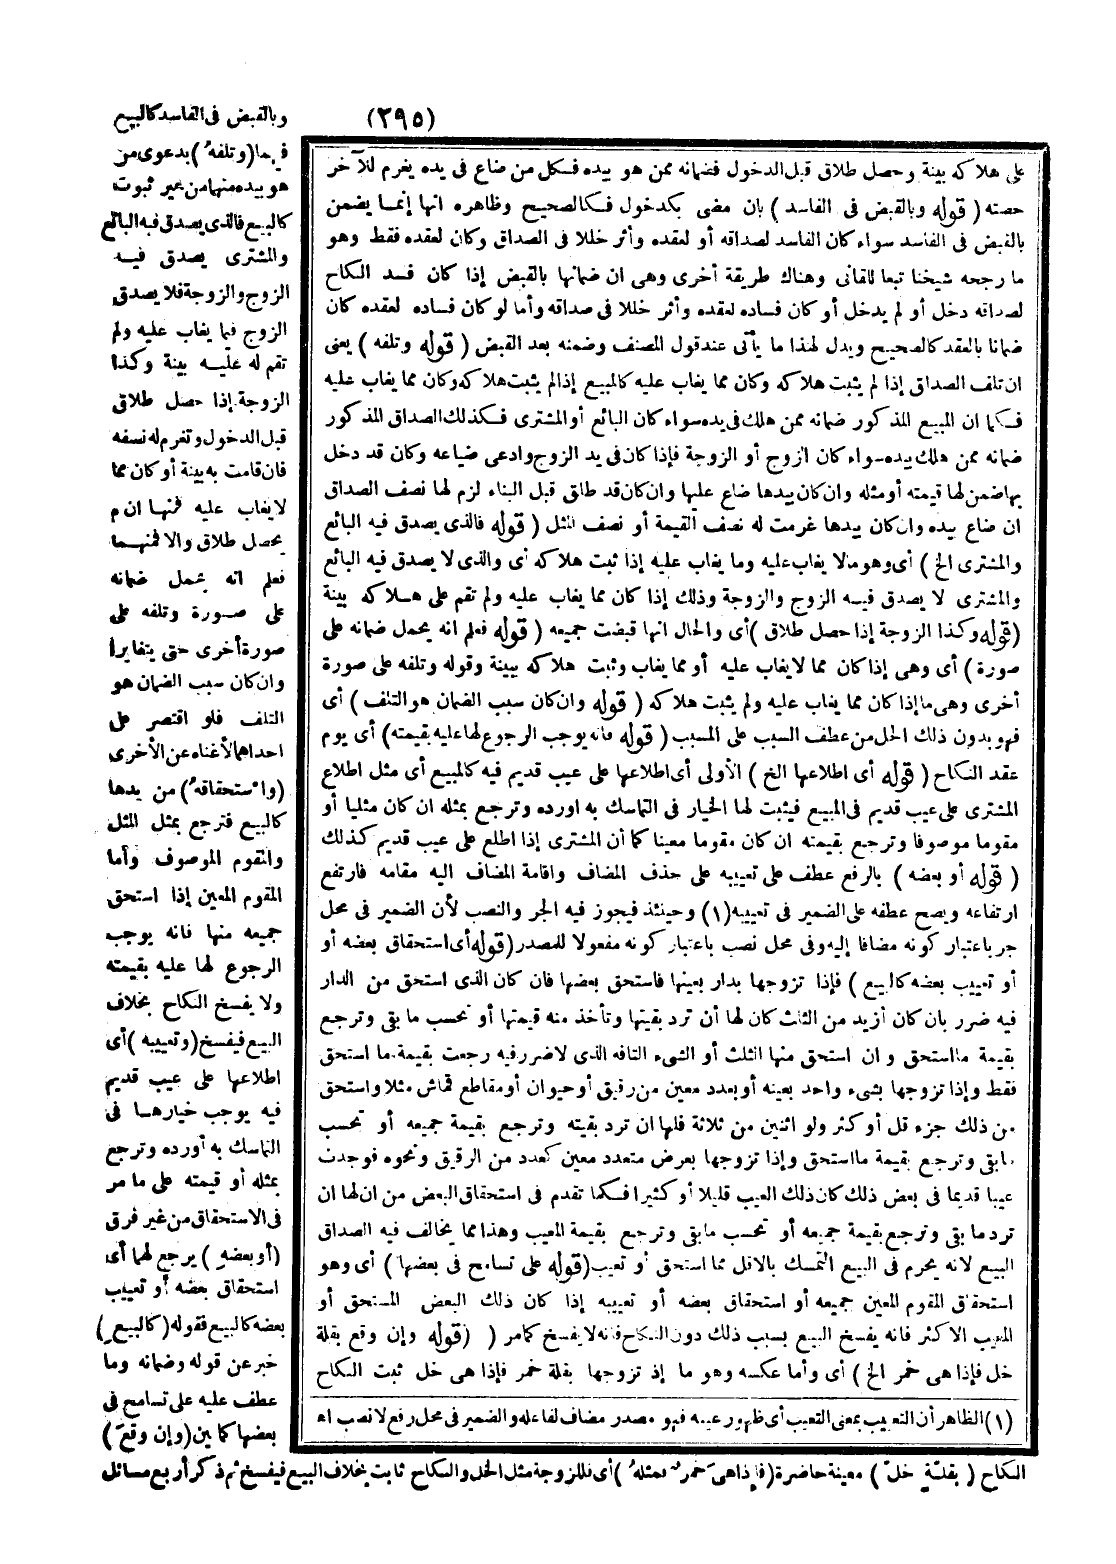 (٢٩٥)
على هلاكه بينة وحصل طلاق قبل الدخول فضمانه ممن هو بيده فكل من ضاع فى يده يغرم للآخر
حصته ( قوله وبالقبض فى الفاسد ) بان مضى بكدخول فكالصحيح وظاهره انها إنما يضمن
بالقبض فى الفاسد سواء كان الفاسد لصداقه أو لعقده وأثر خللا فى الصداق وكان لعقده فقط وهو
ما رجحه شيخنا تبعا للقانى وهناك طريقة أخرى وهى ان ضمانها بالقبض إذا كان فسد النكاح
لصداقه دخل أو لم يدخل أو كان فساده لعقده وأثر خللا فى صداقه وأما لو كان فساده لعقده كان
ضمانا بالعقد كالصحيح ويدل لهذا ما يأتى عند قول المصنف وضمنه بعد القبض ( قوله وتلفه ) يعنى
ان تلف الصداق إذا لم يثبت هلاكه وكان مما يغاب عليه كالمبيع إذا لم يثبت هلاكه وكان مما يغاب عليه
فكما ان المبيع المذكور ضمانه ممن هلك فى يده سواء كان البائع أو المشترى فكذلك الصداق المذكور
ضمانه ممن هلك بيده سواء كان الزوج أو الزوجة فإذا كان فى يد الزوج وادعى ضياعه وكان قد دخل
بها ضمن لها قيمته أو مثله وان كان بيدها ضاع عليها وان كان قد طلق قبل البناء لزم لها نصف الصداق
ان ضاع بيده وان كان بيدها غرمت له نصف القيمة أو نصف المثل ( قوله فالذى يصدق فيه البائع
والمشترى الخ ) أى وهو مالا يغاب عليه وما يغاب عليه إذا ثبت هلاكه أى والذى لا يصدق فيه البائع
والمشترى لا يصدق فيه الزوج والزوجة وذلك إذا كان مما يغاب عليه ولم تقم على هلاكه بينة
(قوله وكذا الزوجة إذا حصل طلاق )أى والحال انها قبضت جميعه ( قوله فعلم انه يحمل ضمانه على
صورة ) أى وهى إذا كان مما لا يغاب عليه أو مما يغاب وثبت هلاكه ببينة وقوله وتلفه على صورة
أخرى وهى ما إذا كان مما يغاب عليه ولم يثبت هلاكه ( قوله وان كان سبب الضمان هو التلف ) أى
فهو بدون ذلك الحل من عطف السبب على المسبب ( قوله فانه يوجب الرجوع لها عليه بقيمته) أى يوم
عقد النكاح ( قوله أى اطلاعها الخ ) الأولى أى اطلاعها على عيب قديم فيه كالمبيع أى مثل اطلاع
المشترى على عيب قديم فى المبيع فيثبت لها الخيار فى التماسك به اورده وترجع بمثله ان كان مثليا أو
مقوما موصوفا وترجع بقيمته ان كان مقوما معينا كما أن المشترى إذا اطلع على عيب قديم كذلك
( قوله أو بعضه ) بالرفع عطف على تعييبه على حذف المضاف واقامة المضاف اليه مقامه فارتفع
ارتفاعه ويصح عطفه على الضمير فى تعييبه(١) وحينئذ فيجوز فيه الجر والنصب لأن الضمير فى محل
جر باعتبار كونه مضافا إليه وفى محل نصب باعتبار كونه مفعولا للمصدر (قوله أى استحقاق بعضه أو
أو تعييب بعضه كالبيع ) فإذا تزوجها بدار بعينها فاستحق بعضها فان كان الذى استحق من الدار
فيه ضرر بان كان أزيد من الثلث كان لها أن ترد بقيتها وتأخذ منه قيمتها أو تحسب ما بقى وترجع
بقيمة ما استحق وان استحق منها الثلث أو الشىء التافه الذى لا ضرر فيه رجعت بقيمة ما استحق
فقط وإذا تزوجها بشىء واحد بعينه أو بعدد معين من رقيق أو حيوان أو مقاطع قماش مثلا واستحق
من ذلك جزء قل أو كثر ولو اثنين من ثلاثة فلها ان ترد بقيته وترجع بقيمة جميعه أو تحسب
ما بقى وترجع بقيمة ما استحق وإذا تزوجها بعرض متعدد معين كعدد من الرقيق ونحوه فوجدت
عيبا قديما فى بعض ذلك كان ذلك العيب قليلا أو كثيرا فكما تقدم فى استحقاق البعض من ان لها ان
ترد ما بقى وترجع بقيمة جميعه أو تحسب مابقى وترجع بقيمة المعيب وهذا مما يخالف فيه الصداق
البيع لانه يحرم فى البيع التمسك بالاقل مما استحق أو تعيب (قوله على تسامح فى بعضها ) أى وهو
استحقاق المقوم المعين جميعه أو استحقاق بعضه أو تعييبه إذا كان ذلك البعض المستحق أو
المعيب الاكثر فانه يفسخ البيع بسبب ذلك دون النكاح فانه لا يفسخ كما مر ( (قوله وإن وقع بقلة
خل فإذا هى خمر الخ ) أى وأما عكسه وهو ما إذ تزوجها بقلة خمر فإذا هى خل ثبت النكاح
(١) الظاهر أن التعييب بمعنى التعيب أى ظهور عيبه فهو مصدر مضاف لفاعله والضمير فى محل رفع لا نصب اه
وبالقبض فى الفاسد كالبيع
فيها (وتلفه )بدعوى من
هو بيده منهما من غير ثبوت
كالبيع فالذى يصدق فيه البائع
والمشترى يصدق فيه
الزوج والزوجة فلا يصدق
الزوج فيما يغاب عليه ولم
تقم له عليه بينة وكذا
الزوجة إذا حصل طلاق
قبل الدخول وتغرم له نصفه
فان قامت به بينة أو كان مما
لا يغاب عليه فمنها ان لم
يحصل طلاق والا فمنهما
فعلم انه يحمل ضمانه
على صورة وتلفه على
صورة أخرى حتى يتغايرا
وان كان سبب الضمان هو
التلف فلو اقتصر على
احداهما لأغناه عن الأخرى
(واستحقاقه ) من يدها
كالبيع فترجع بمثل المثل
والمقوم الموصوف وأما
المقوم المعين إذا استحق
جميعه منها فانه يوجب
الرجوع لها عليه بقيمته
ولا يفسخ النكاح بخلاف
البيع فيفسخ (وتعييبه )أى
اطلاعها على عيب قديم
فيه يوجب خيارها فى
التماسك به أورده وترجع
بمثله أو قيمته على ما مر
فى الاستحقاق من غير فرق
(أو بعضه ) يرجع لهما أى
استحقاق بعضه أو تعييب
بعضه كالبيع فقوله (كالبيع )
خبر عن قوله وضمانه وما
عطف عليه على تسامح فى
بعضها كما بين (وإن وقع )
النكاح ( بقلة خل ) معينة حاضرة (فإذا هى خمر فمثله )أى فللزوجة مثل الخل والنكاح ثابت بخلاف البيع فيفسخ ثم ذكر أربع مسائل